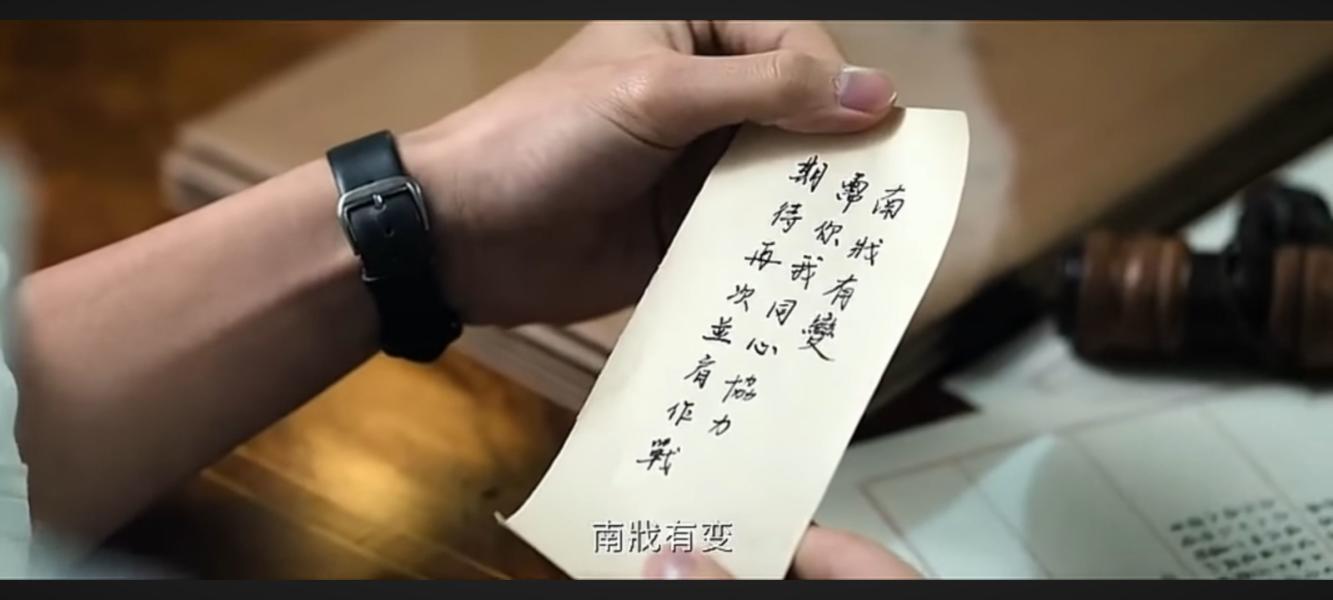 南戕有變
需你我同心協力
期待再次並肩作戰
南戕有变